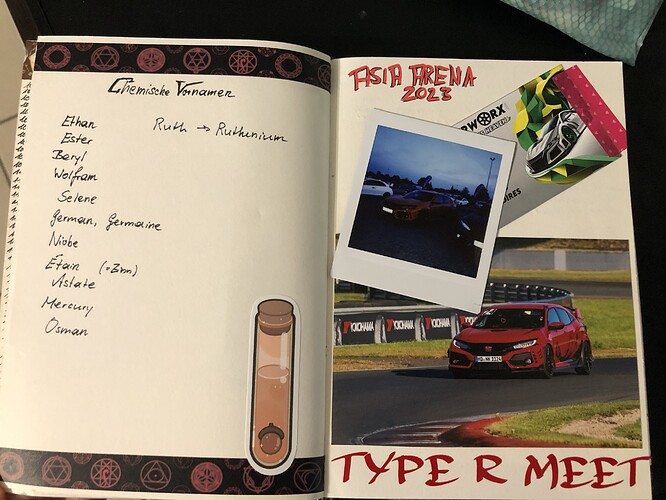 Chemische Vornamen
Ethan
Ruth → Ruthenium
Ester
Beryl
Wolfram
Selene
German, Germaine
Niobe
Étain (=Zinn)
Astate
Mercury
Osman
ASIA ARENA
2023
RWORX
HEAVEN
YOKOHAMA
YOKOHAMA
YOKOHAMA
TYPE R MEET